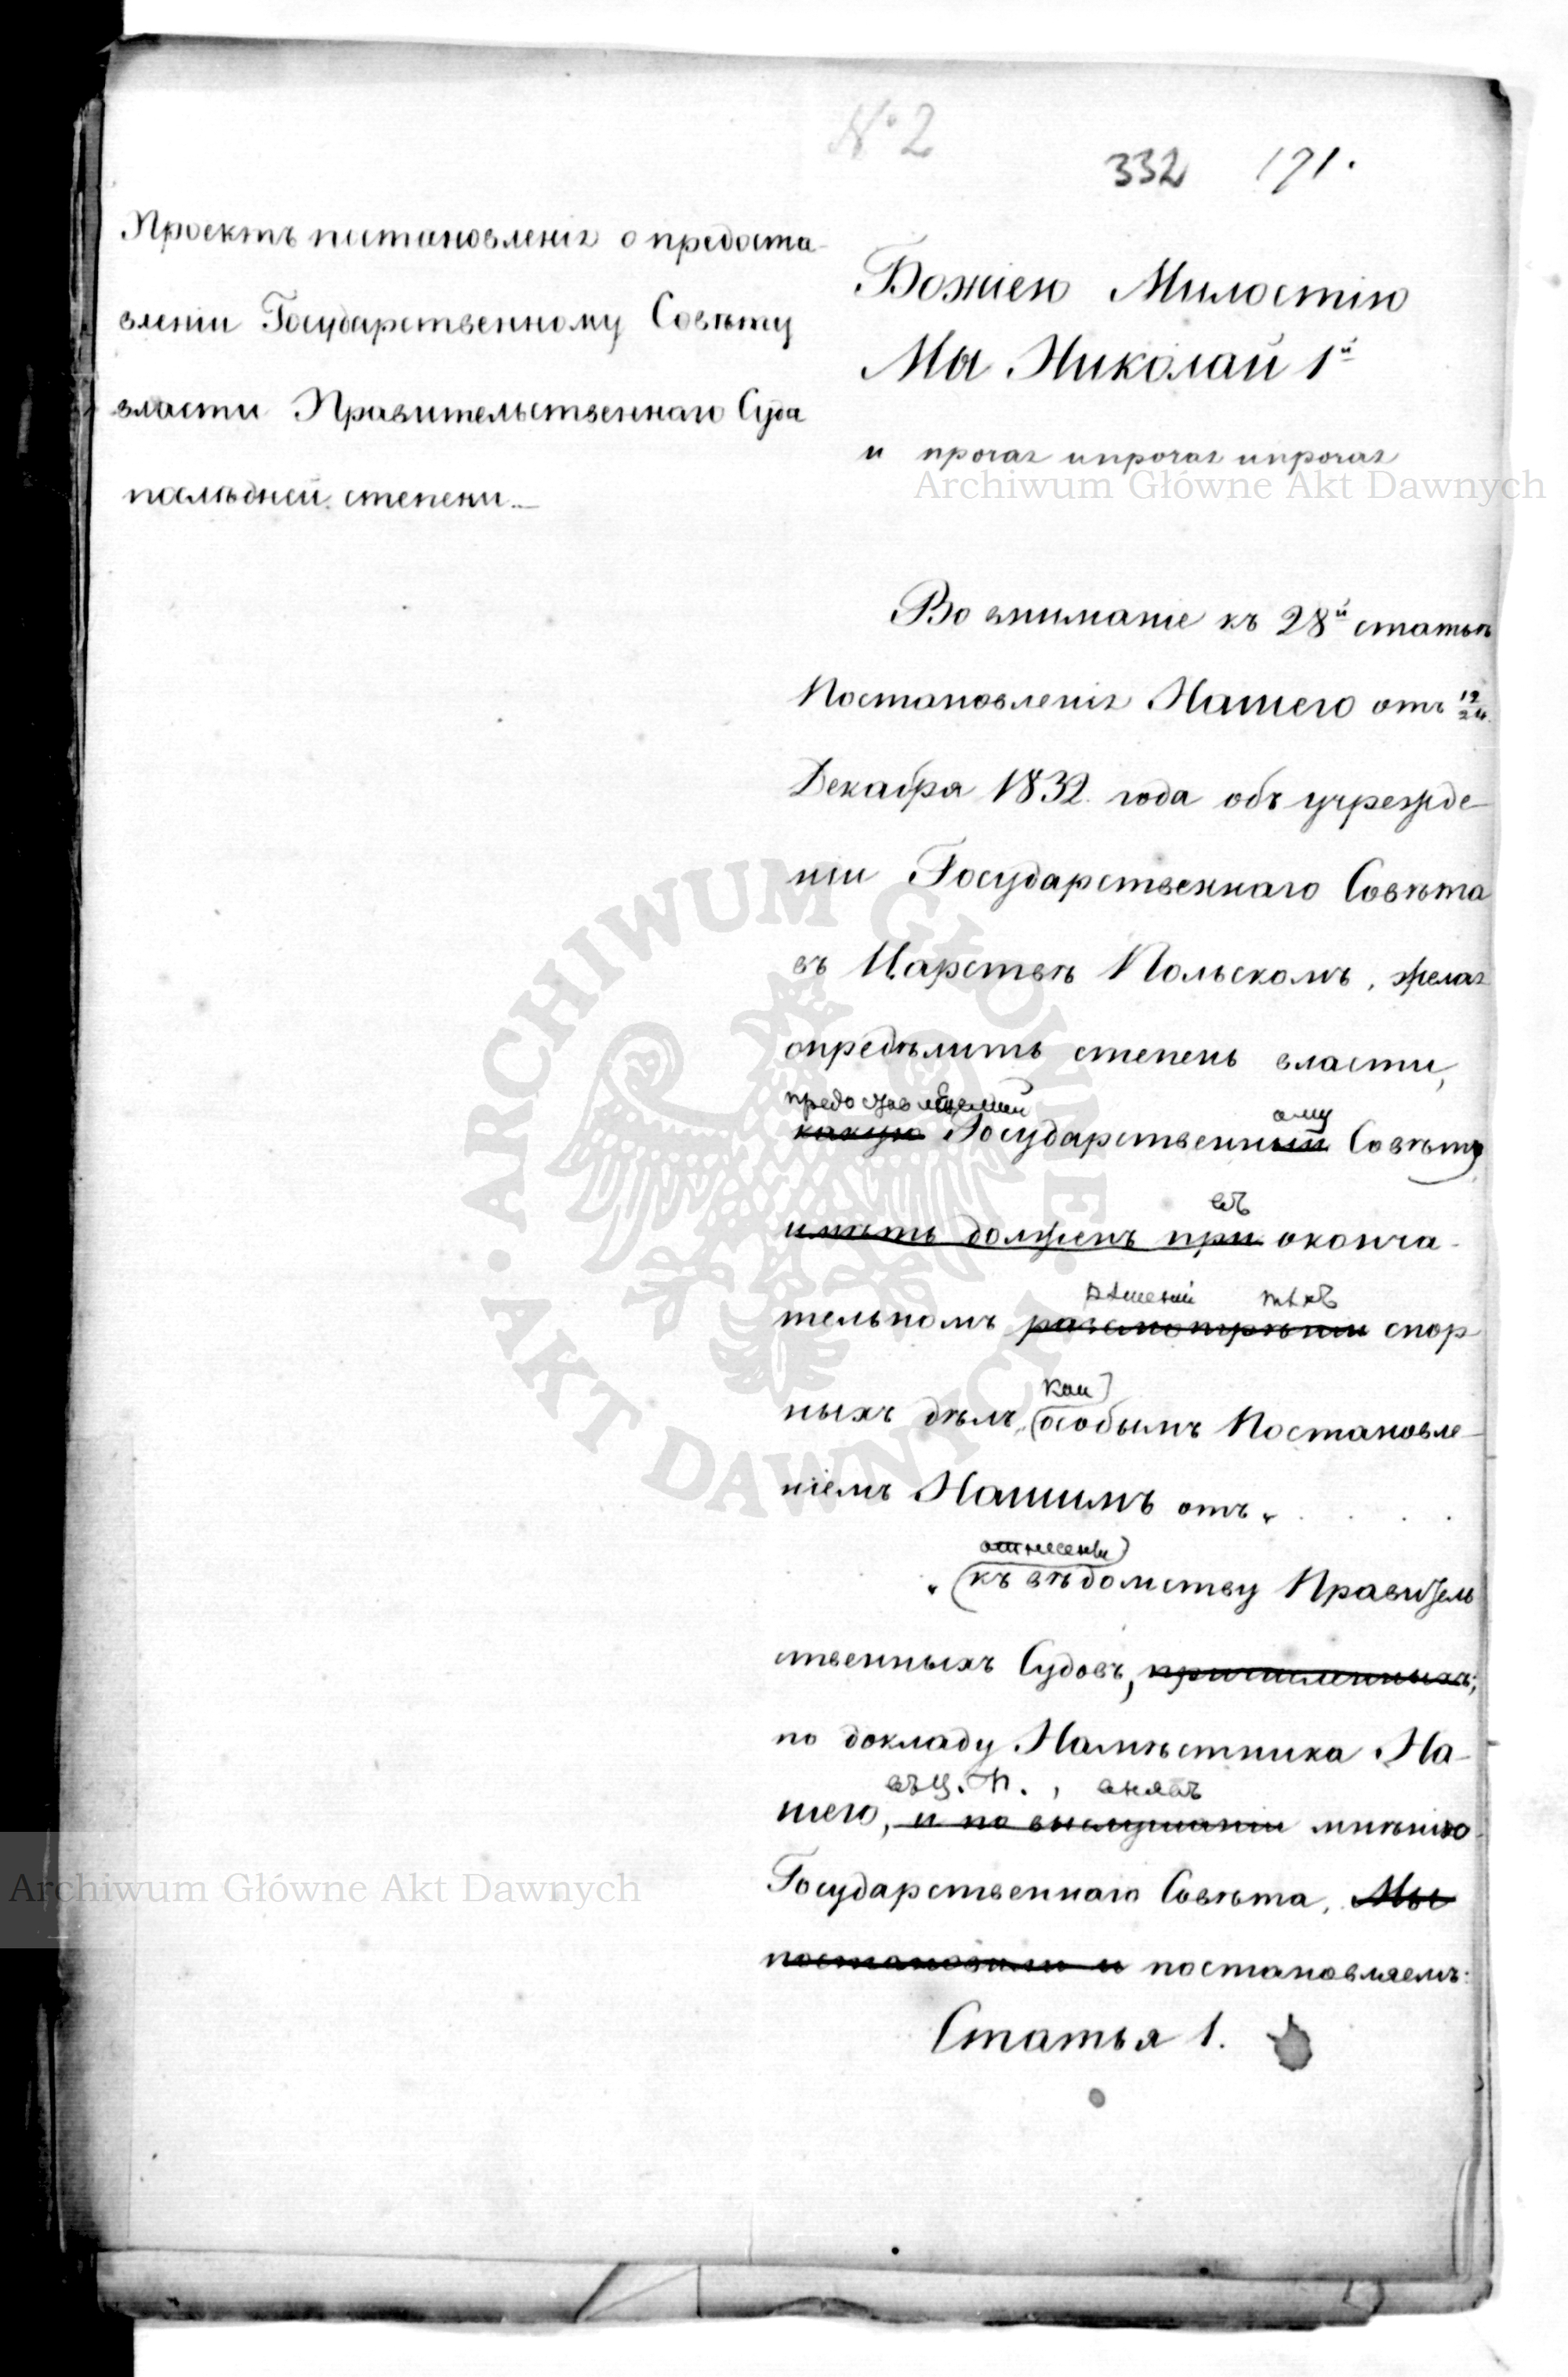 № 2
332 171.
Проектъ постановленія о предоста-
вленіи Государственному Совѣту
власти Правительственнаго Суда
послѣдней степени.
Божіею Милостію
Мы Николай 1й
и прочая и прочая и прочая
Archiwum Główne Akt Dawnych
Во вниманіе къ 28й статьѣ
Постановленія Нашего отъ 12/24
Декабря 1832 года объ учрежде-
ніи Государственнаго Совѣта
въ Царствѣ Польскомъ, желая
опредѣлить степень власти,
предоставленной ому
какую Государственный Совѣту
въ
имѣть долженъ при оконча-
рѣшеніи тѣхъ
тельномъ разсмотрѣніи спор
кои
ныхъ дѣлъ, (особымъ Постановле-
ніемъ Нашимъ отъ " . . . .
отнесены
" (къ вѣдомству Правитель
ственныхъ Судовъ, причисленныхъ;
по докладу Намѣстника На-
въ Ц. П., внявъ
шего, и по выслушаніи мнѣнію
Государственнаго Совѣта, Мы
Archiwum Główne Akt Dawnych
постановили и постановляемъ:
Статья 1.
ARCHIWUM GŁÓWNE AKT DAWNYCH